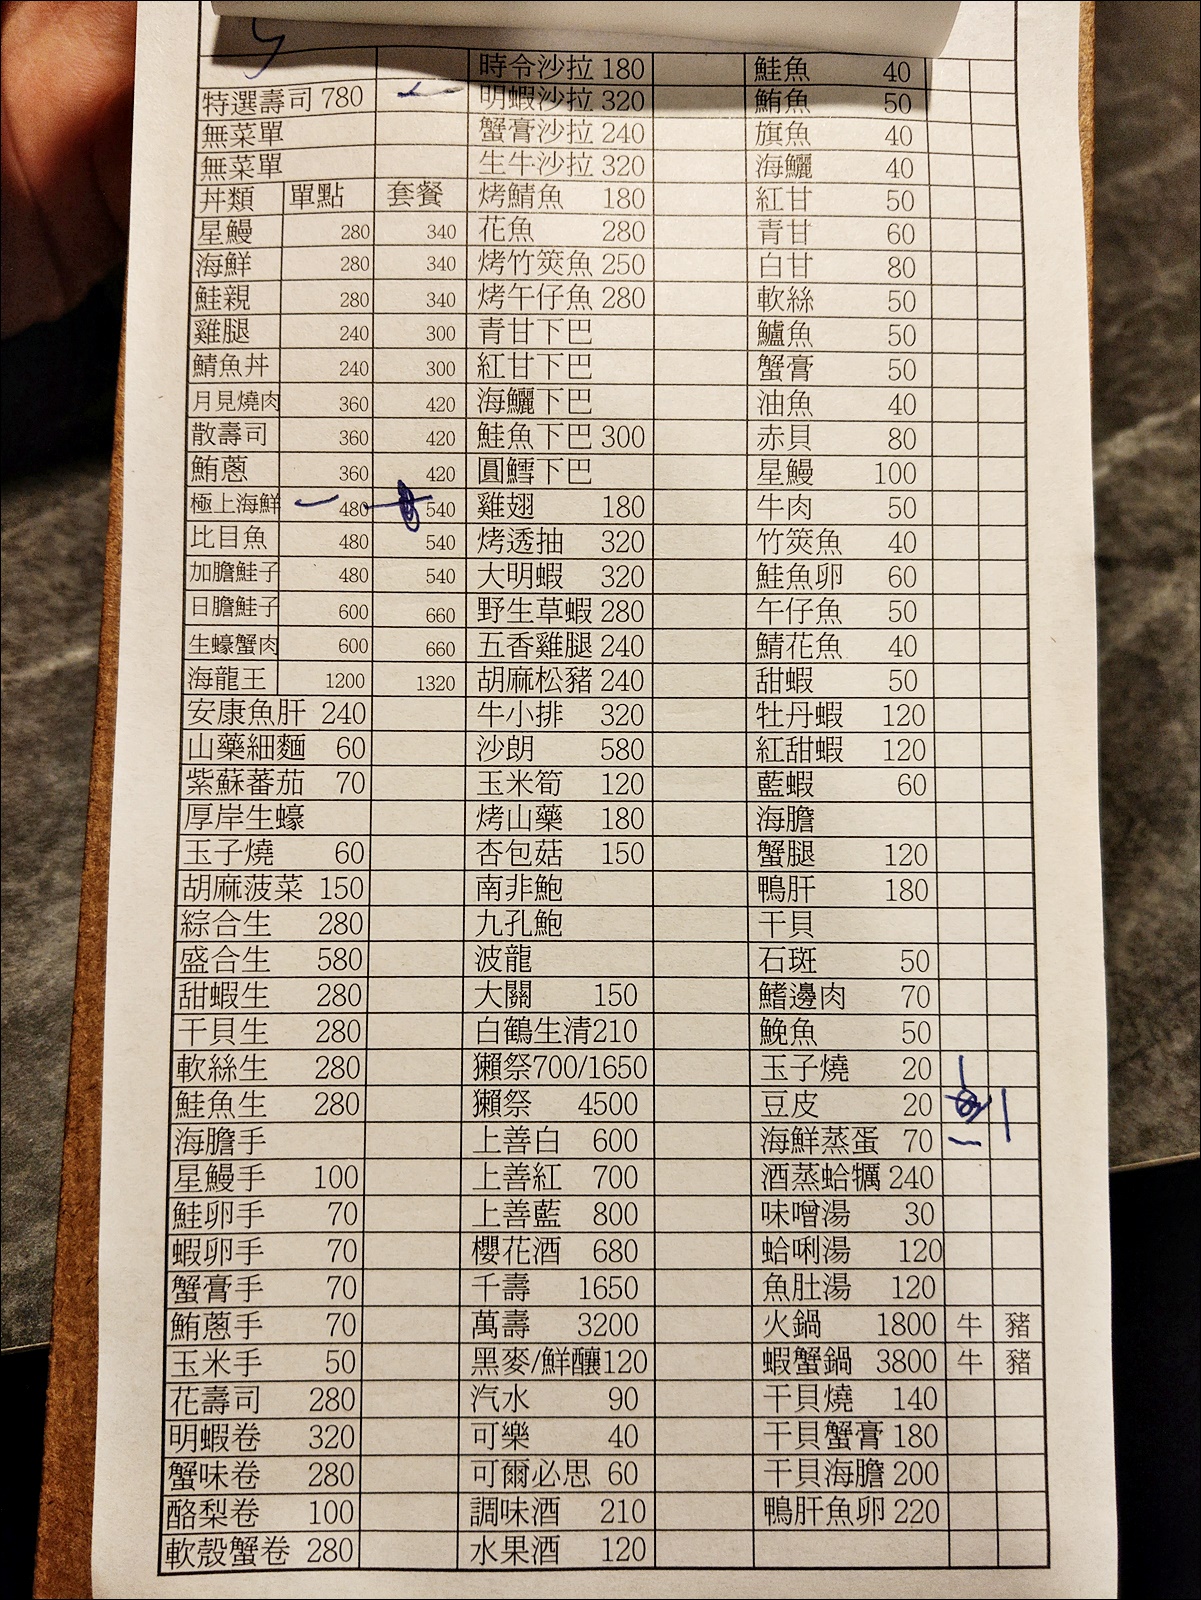 時令沙拉 180 鮭魚 40
特選壽司 780 明蝦沙拉 320 鮪魚 50
無菜單 蟹膏沙拉 240 旗魚 40
無菜單 生牛沙拉 320 海鱺 40
丼類 單點 套餐 烤鯖魚 180 紅甘 50
星鰻 280 340 花魚 280 青甘 60
海鮮 280 340 烤竹筴魚 250 白甘 80
鮭親 280 340 烤午仔魚 280 軟絲 50
雞腿 240 300 青甘下巴 鱸魚 50
鯖魚丼 240 300 紅甘下巴 蟹膏 50
月見燒肉 360 420 海鱺下巴 油魚 40
散壽司 360 420 鮭魚下巴 300 赤貝 80
鮪蔥 360 420 圓鱈下巴 星鰻 100
極上海鮮 480 540 雞翅 180 牛肉 50
比目魚 480 540 烤透抽 320 竹筴魚 40
加膽鮭子 480 540 大明蝦 320 鮭魚卵 60
日膽鮭子 600 660 野生草蝦 280 午仔魚 50
生蠔蟹肉 600 660 五香雞腿 240 鯖花魚 40
海龍王 1200 1320 胡麻松豬 240 甜蝦 50
安康魚肝 240 牛小排 320 牡丹蝦 120
山藥細麵 60 沙朗 580 紅甜蝦 120
紫蘇蕃茄 70 玉米筍 120 藍蝦 60
厚岸生蠔 烤山藥 180 海膽
玉子燒 60 杏包菇 150 蟹腿 120
胡麻菠菜 150 南非鮑 鴨肝 180
綜合生 280 九孔鮑 干貝
盛合生 580 波龍 石斑 50
甜蝦生 280 大關 150 鰭邊肉 70
干貝生 280 白鶴生清210 鮸魚 50
軟絲生 280 獺祭700/1650 玉子燒 20
鮭魚生 280 獺祭 4500 豆皮 20
海膽手 上善白 600 海鮮蒸蛋 70
星鰻手 100 上善紅 700 酒蒸蛤犡 240
鮭卵手 70 上善藍 800 味噌湯 30
蝦卵手 70 櫻花酒 680 蛤唎湯 120
蟹膏手 70 千壽 1650 魚肚湯 120
鮪蔥手 70 萬壽 3200 火鍋 1800 牛 豬
玉米手 50 黑麥/鮮釀120 蝦蟹鍋 3800 牛 豬
花壽司 280 汽水 90 干貝燒 140
明蝦卷 320 可樂 40 干貝蟹膏 180
蟹味卷 280 可爾必思 60 干貝海膽 200
酪梨卷 100 調味酒 210 鴨肝魚卵 220
軟殼蟹卷 280 水果酒 120